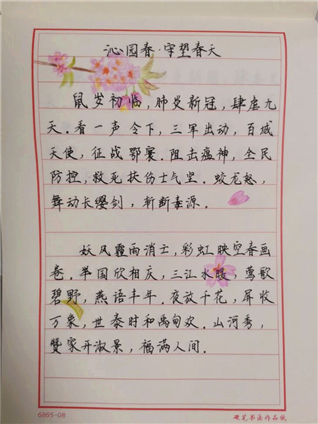 沁园春·守望春天
鼠岁初临，肺炎新冠，肆虐九
天。看一声令下，三军出动，百城
天使，征战鄂襄。阻击瘟神，全民
防控，救死扶伤士气坚。蛟龙怒，
舞动长缨剑，斩断毒源。
妖风霾雨消亡，彩虹映空春画
卷。举国欣相庆，三江水暖，莺歌
碧野，燕语丰年。夜放千花，屏收
万象，世泰时和禹甸欢。山河秀，
赞家开淑景，福满人间。
6855-08
硬笔书法作品纸